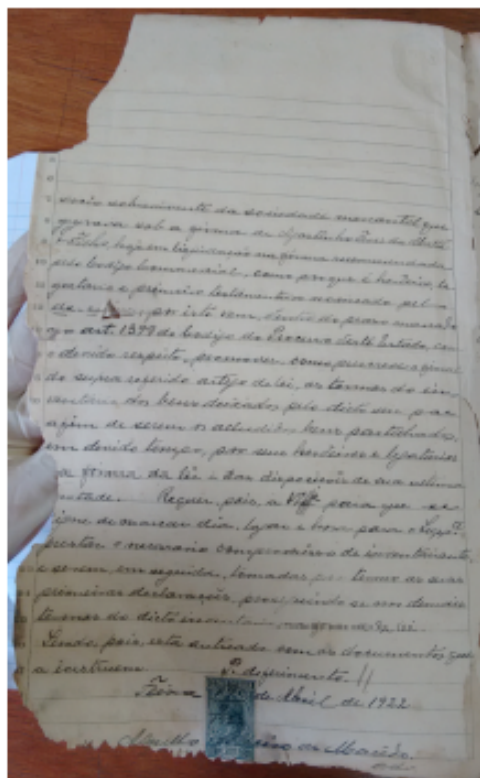 socio sobrevivente da sociedade mercantil que
gyrava sob a firma de Agostinho
& Filho, hoje em liquidação na forma recommendada
pelo Codigo Commercial, como porque é herdeiro, le
gatario e primeiro testamenteiro nomeado pel
de por isto vem, dentro do prazo marcado
o art. 1390 do Codigo do Processo deste Estado, com
o devido respeito, promover, como
do supra referido artigo de lei, os termos do in
ventario dos bens deixados pelo dicto seu pae
afim de serem os alludidos bens partilhados,
em devido tempo, por seus herdeiros e legatarios
na forma da lei e das disposições de sua ultima
vontade. Requer, pois, a para que se
digne de marcar dia, logar e hora para o Suppe
prestar o necessario compromisso de inventariante,
e serem, em seguida, tomadas por termo as suas
primeiras declarações, proseguindo-se nos demais
termos do dicto inventario, na forma da lei.
Sendo, pois, esta autuada com os documentos que
a instruem P. deferimento.
de Abril de 1922
de Macêdo.